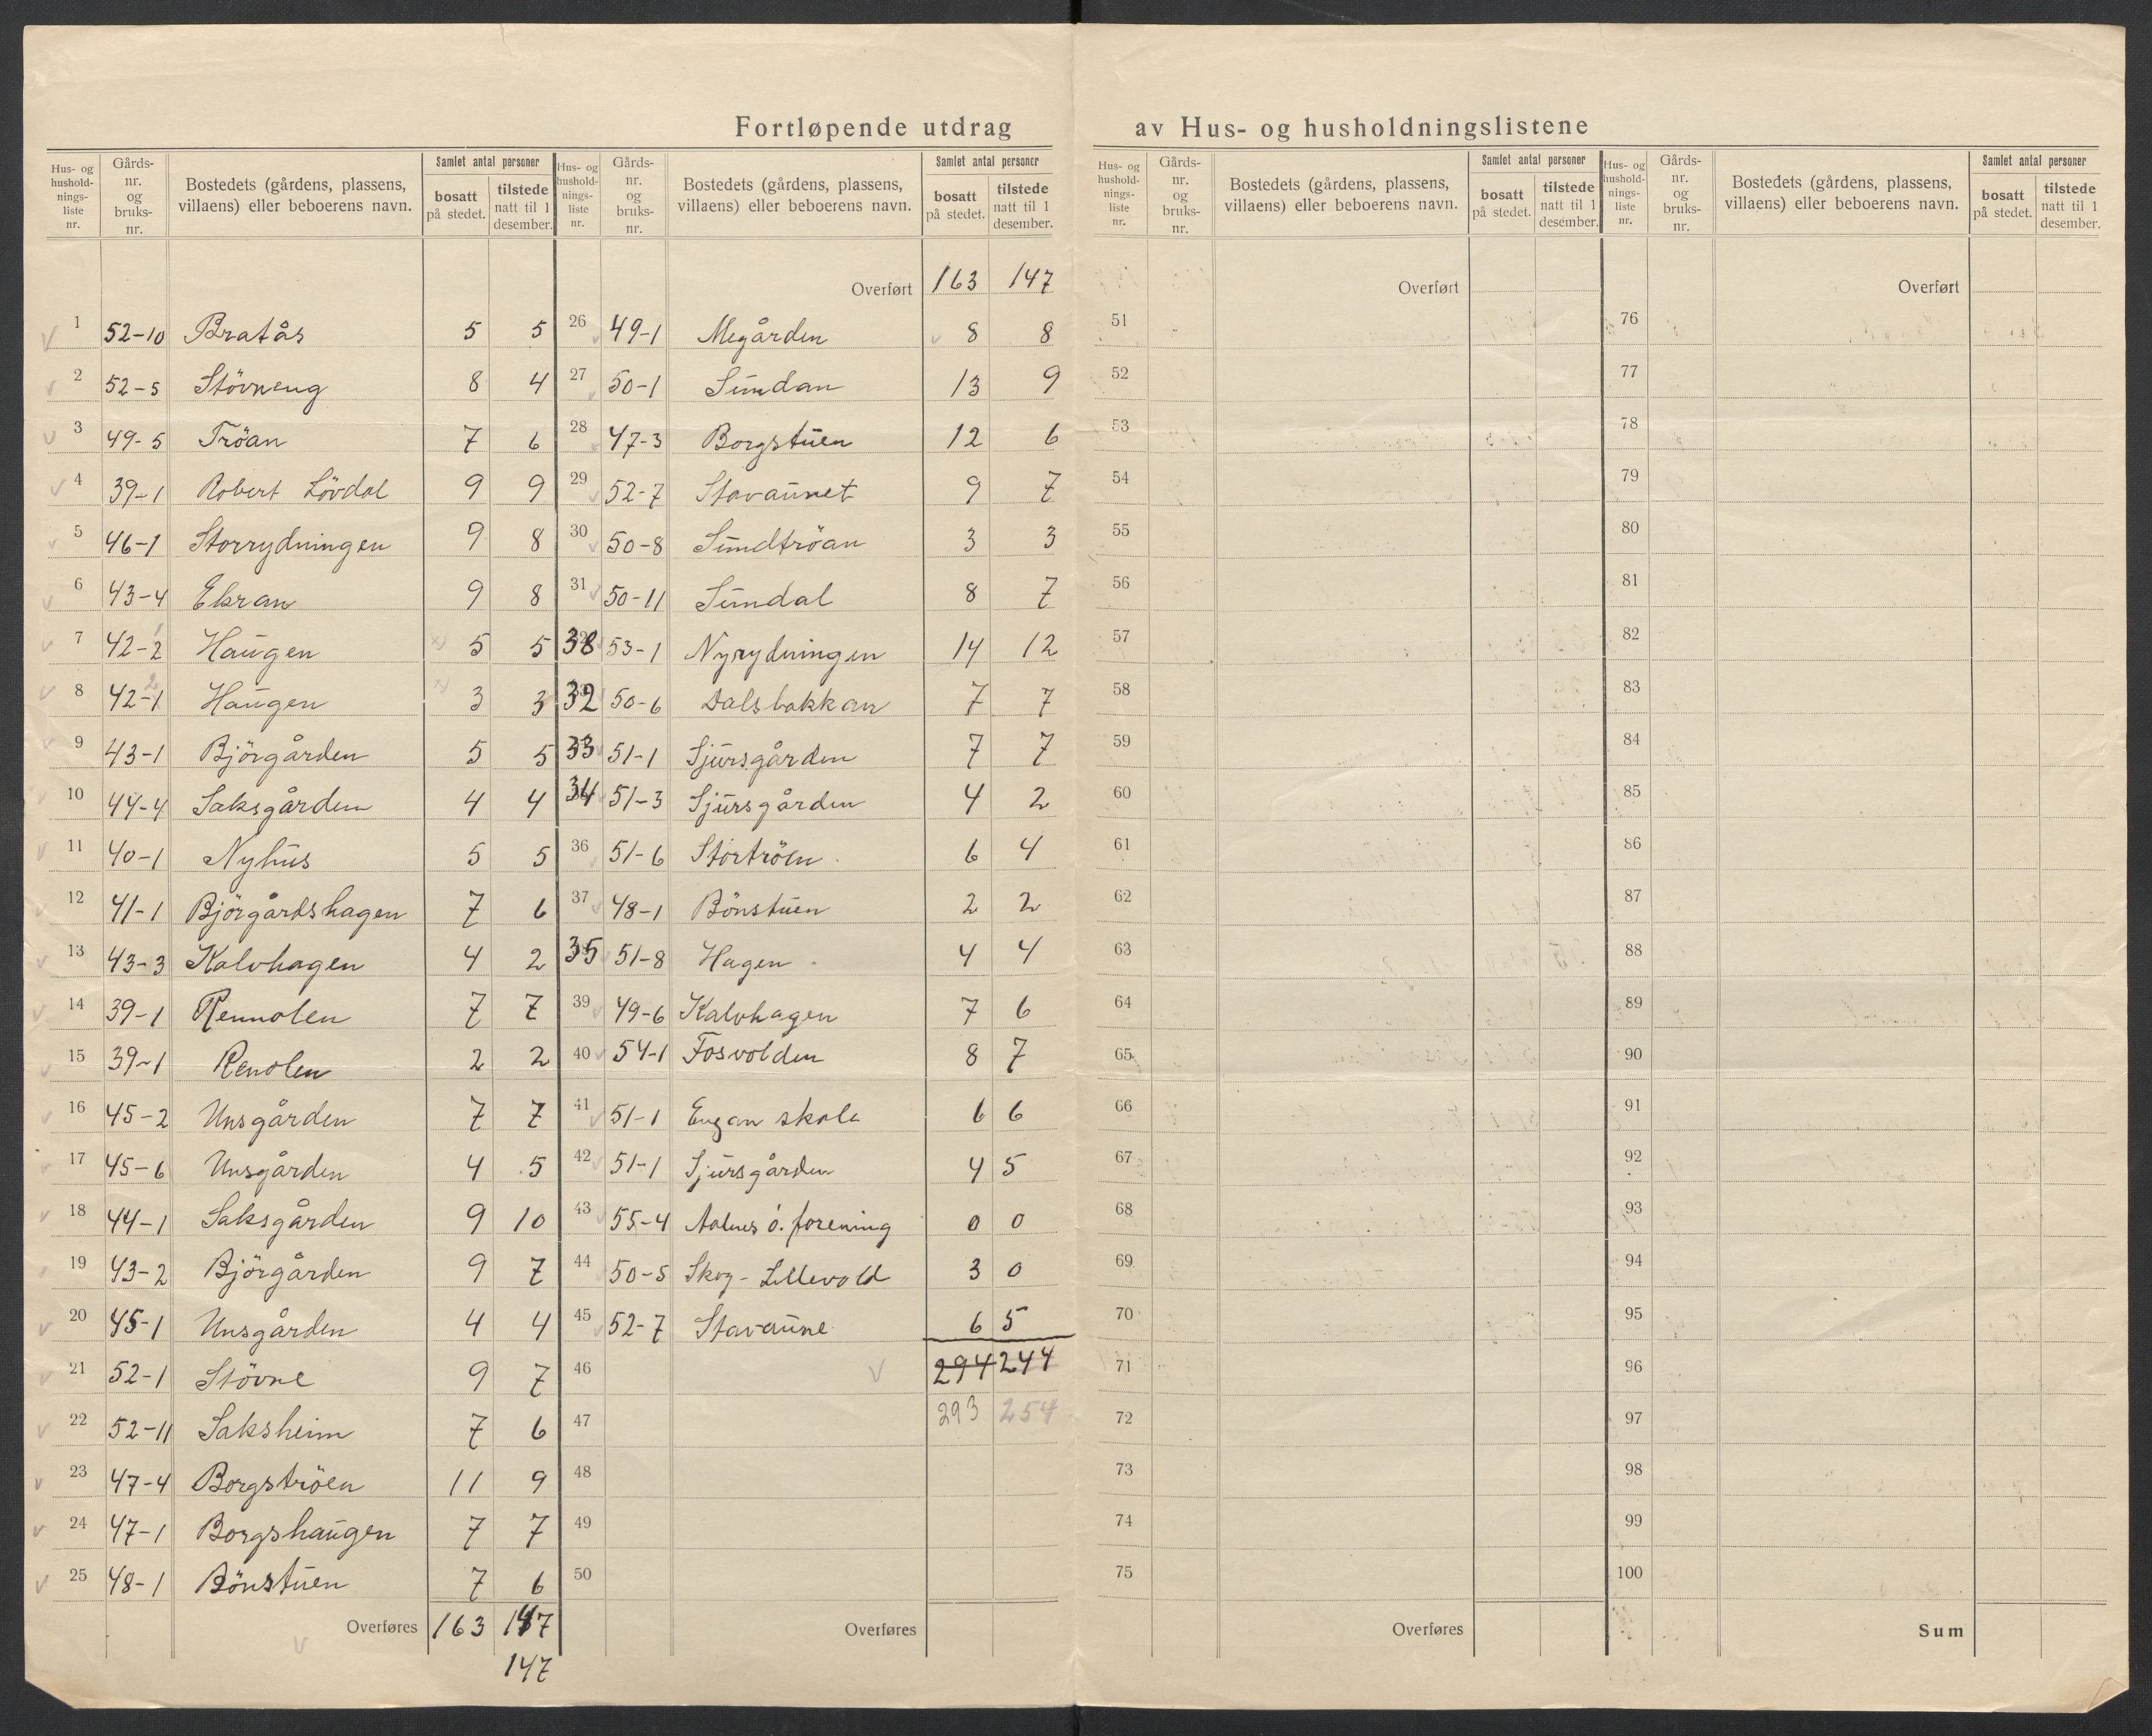 Fortløpende utdrag av Hus- og husholdningslistene
Hus- og husholdningsliste nr. | Gårdsnr. og bruksnr. | Bostedets (gårdens, plassens, villaens) eller beboerens navn. | Samlet antal personer | bosatt på stedet. | tilstede natt til 1 desember.
1 52-10 Bratås 5 5
2 52-5 Stövneng 8 4
3 49-5 Tröan 7 6
4 39-1 Robert Lövdal 9 9
5 46-1 Storrydningen 9 8
6 43-4 Ekran 9 8
7 42-2 Haugen 5 5
8 42-1 Haugen 3 3
9 43-1 Björgården 5 5
10 44-4 Saksgården 4 4
11 40-1 Nyhus 5 5
12 41-1 Björgårdshagen 7 6
13 43-3 Kalvhagen 4 2
14 39-1 Rennolen 7 7
15 39-1 Renolen 2 2
16 45-2 Unsgården 7 7
17 45-6 Unsgården 4 5
18 44-1 Saksgården 9 10
19 43-2 Björgården 9 7
20 45-1 Unsgården 4 4
21 52-1 Stövne 9 7
22 52-11 Saksheim 7 6
23 47-4 Borgströen 11 9
24 47-1 Borgshaugen 7 7
25 48-1 Bönstuen 7 6
Overføres 163 147
147
Hus- og husholdningsliste nr. | Gårdsnr. og bruksnr. | Bostedets (gårdens, plassens, villaens) eller beboerens navn. | Samlet antal personer | bosatt på stedet. | tilstede natt til 1 desember.
Overført 163 147
26 49-1 Megården 8 8
27 50-1 Sundan 13 9
28 47-3 Borgstuen 12 6
29 52-7 Stavaunet 9 7
30 50-8 Sundtröan 3 3
31 50-11 Sundal 8 7
38 53-1 Nyrydningen 14 12
32 50-6 Dalsbakkan 7 7
33 51-1 Sjursgården 7 7
34 51-3 Sjursgården 4 2
36 51-6 Stortröen 6 4
37 48-1 Bönstuen 2 2
35 51-8 Hagen 4 4
39 49-6 Kalvhagen 7 6
40 54-1 Fosvolden 8 7
41 51-1 Engan skole 6 6
42 51-1 Sjursgården 4 5
43 55-4 ö. forening 0 0
44 50-5 Skog-Lillevold 3 0
45 52-7 Stavaune 6 5
46 294 244
47 293 254
48
49
50
Overføres
Hus- og husholdningsliste nr. | Gårdsnr. og bruksnr. | Bostedets (gårdens, plassens, villaens) eller beboerens navn. | Samlet antal personer | bosatt på stedet. | tilstede natt til 1 desember.
Overført
51
52
53
54
55
56
57
58
59
60
61
62
63
64
65
66
67
68
69
70
71
72
73
74
75
Overføres
Hus- og husholdningsliste nr. | Gårdsnr. og bruksnr. | Bostedets (gårdens, plassens, villaens) eller beboerens navn. | Samlet antal personer | bosatt på stedet. | tilstede natt til 1 desember.
Overført
76
77
78
79
80
81
82
83
84
85
86
87
88
89
90
91
92
93
94
95
96
97
98
99
100
Sum